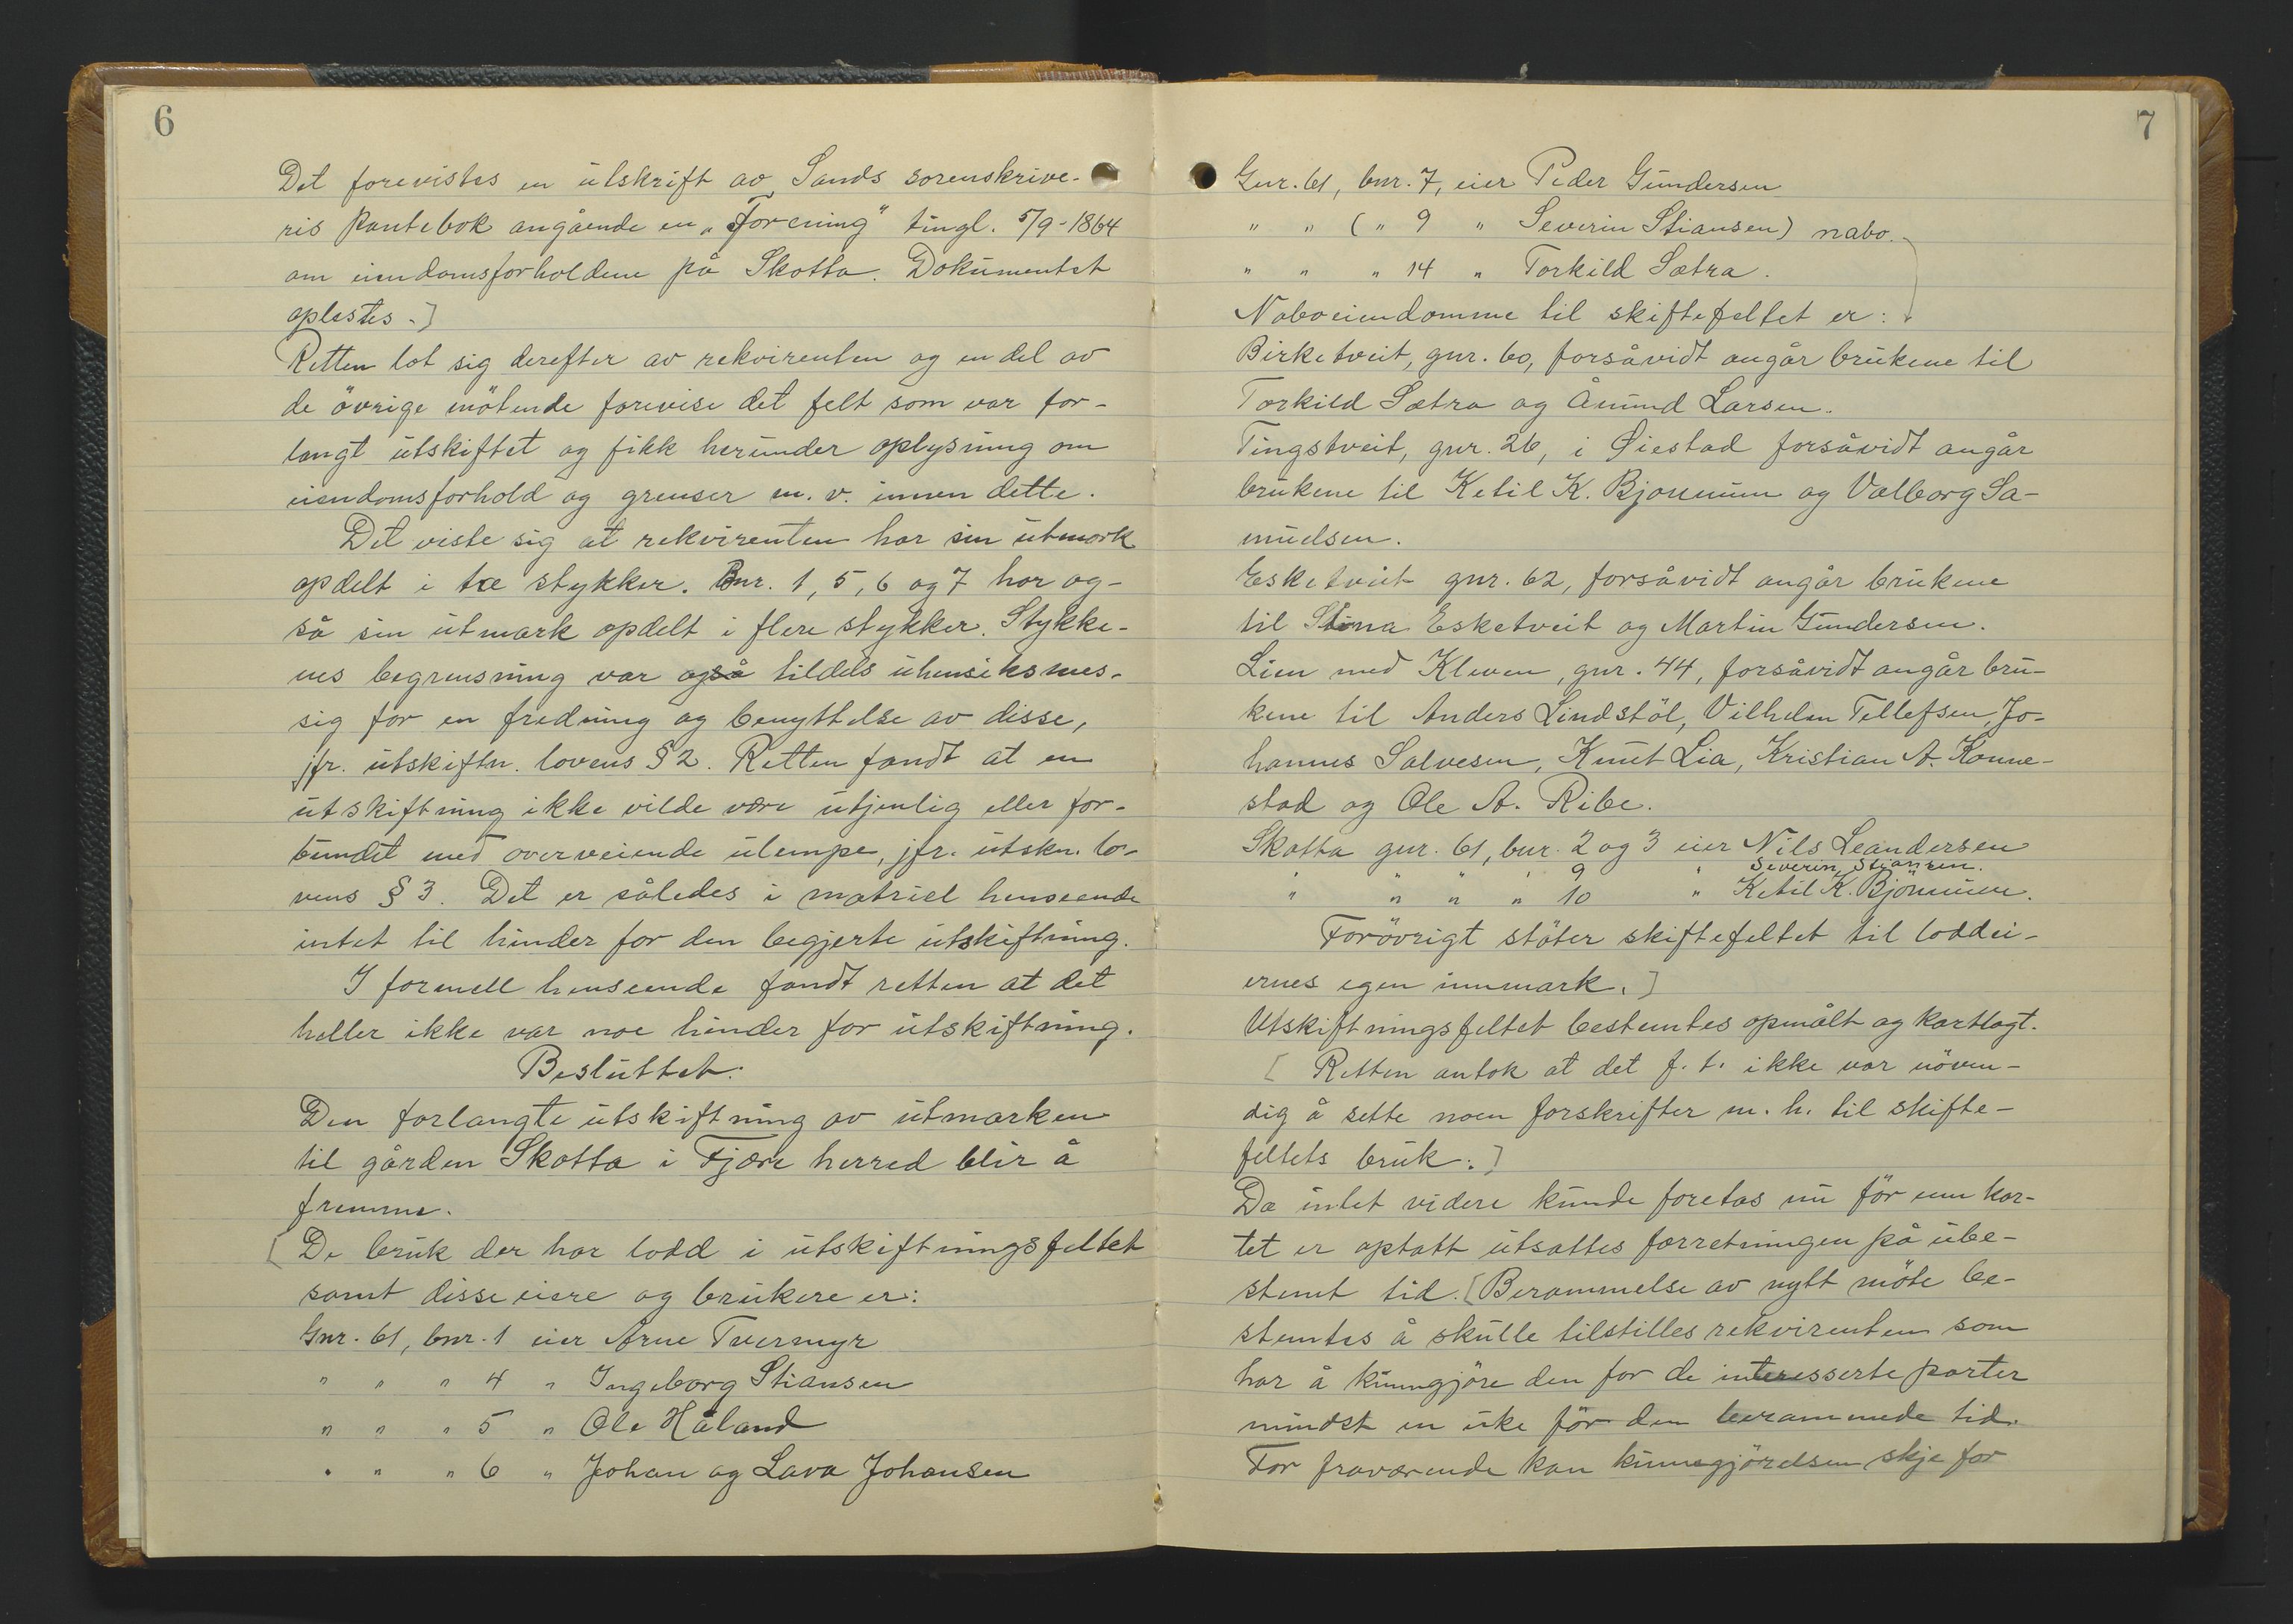 6
Det forevistes en utskrift av Sands sorenskrive-
ris pantebok angående en „Forening" tingl. 5/9-1864
om eiendomsforholdene på Skotta. Dokumentet
oplestes.]
Retten lot sig derefter av rekvirenten og en del av
de övrige mötende forevise det felt som var for-
langt utskiftet og fikk herunder oplysning om
eiendomsforhold og grenser m. v. innen dette.
Det viste sig at rekvirenten har sin utmark
opdelt i tre stykker. Bnr. 1, 5, 6 og 7 har og-
så sin utmark opdelt i flere stykker. Stykke-
nes begrensning var også tildels uhensiktsmes-
sig for en fredning og benyttelse av disse,
jfr. utskiftn. lovens § 2. Retten fandt at en
utskiftning ikke vilde være utjenlig eller for-
bundet med overveiende ulempe, jfr. utskn. lo-
vens § 3. Det er således i matriel henseende
intet til hinder for den begjerte utskiftning.
I formell henseende fandt retten at det
heller ikke var noe hinder for utskiftning.
Besluttet:
Den forlangte utskiftning av utmarken
til gården Skotta i Fjære herred blir å
fremme.
[De bruk der har lodd i utskiftningsfeltet
samt disse eiere og brukere er:
Gnr. 61, bnr. 1 eier Arne Tvermyr
" " " 4 " Ingeborg Stiansen
" " " 5 " Ole Håland
" " " 6 " Johan og Lava Johansen
7
Gnr. 61, bnr. 7, eier Peder Gundersen
" " (" 9 " Severin Stiansen) nabo.
" " " 14 " Torkild Sætra.
Naboeiendomme til skiftefeltet er:
Birketveit, gnr. 60, forsåvidt angår brukene til
Torkild Sætra og Ånund Larsen.
Tingstveit, gnr. 26, i Øiestad forsåvidt angår
brukene til Ketil K. Bjonnum og Valborg Sa-
muelsen.
Esketveit gnr. 62, forsåvidt angår brukene
til Stina Esketveit og Martin Gundersen.
Lien med Kleven, gnr. 44, forsåvidt angår bru-
kene til Anders Lindstöl, Vilhelm Tellefsen, Jo-
hannes Salvesen, Knut Lia, Kristian A. Konne-
stad og Ole A. Ribe.
Skotta gnr. 61, bnr. 2 og 3 eier Nils Leandersen
" 9 " Severin Stiansen.
" " " " 10 " Ketil K. Bjönnum.
Forövrigt stöter skiftefeltet til loddei-
ernes egen innmark.]
Utskiftningsfeltet bestemtes opmålt og kartlagt.
[Retten antok at det f. t. ikke var növen-
dig å sette noen forskrifter m. h. til skifte-
feltets bruk.]
Da intet videre kunde foretas nu för enn kar-
tet er optatt utsattes forretningen på ube-
stemt tid. [Berammelse av nytt möte be-
stemtes å skulle tilstilles rekvirenten som
har å kunngjöre den for de interesserte parter
mindst en uke för den berammede tid.
For fraværende kan kunngjörelsen skje for